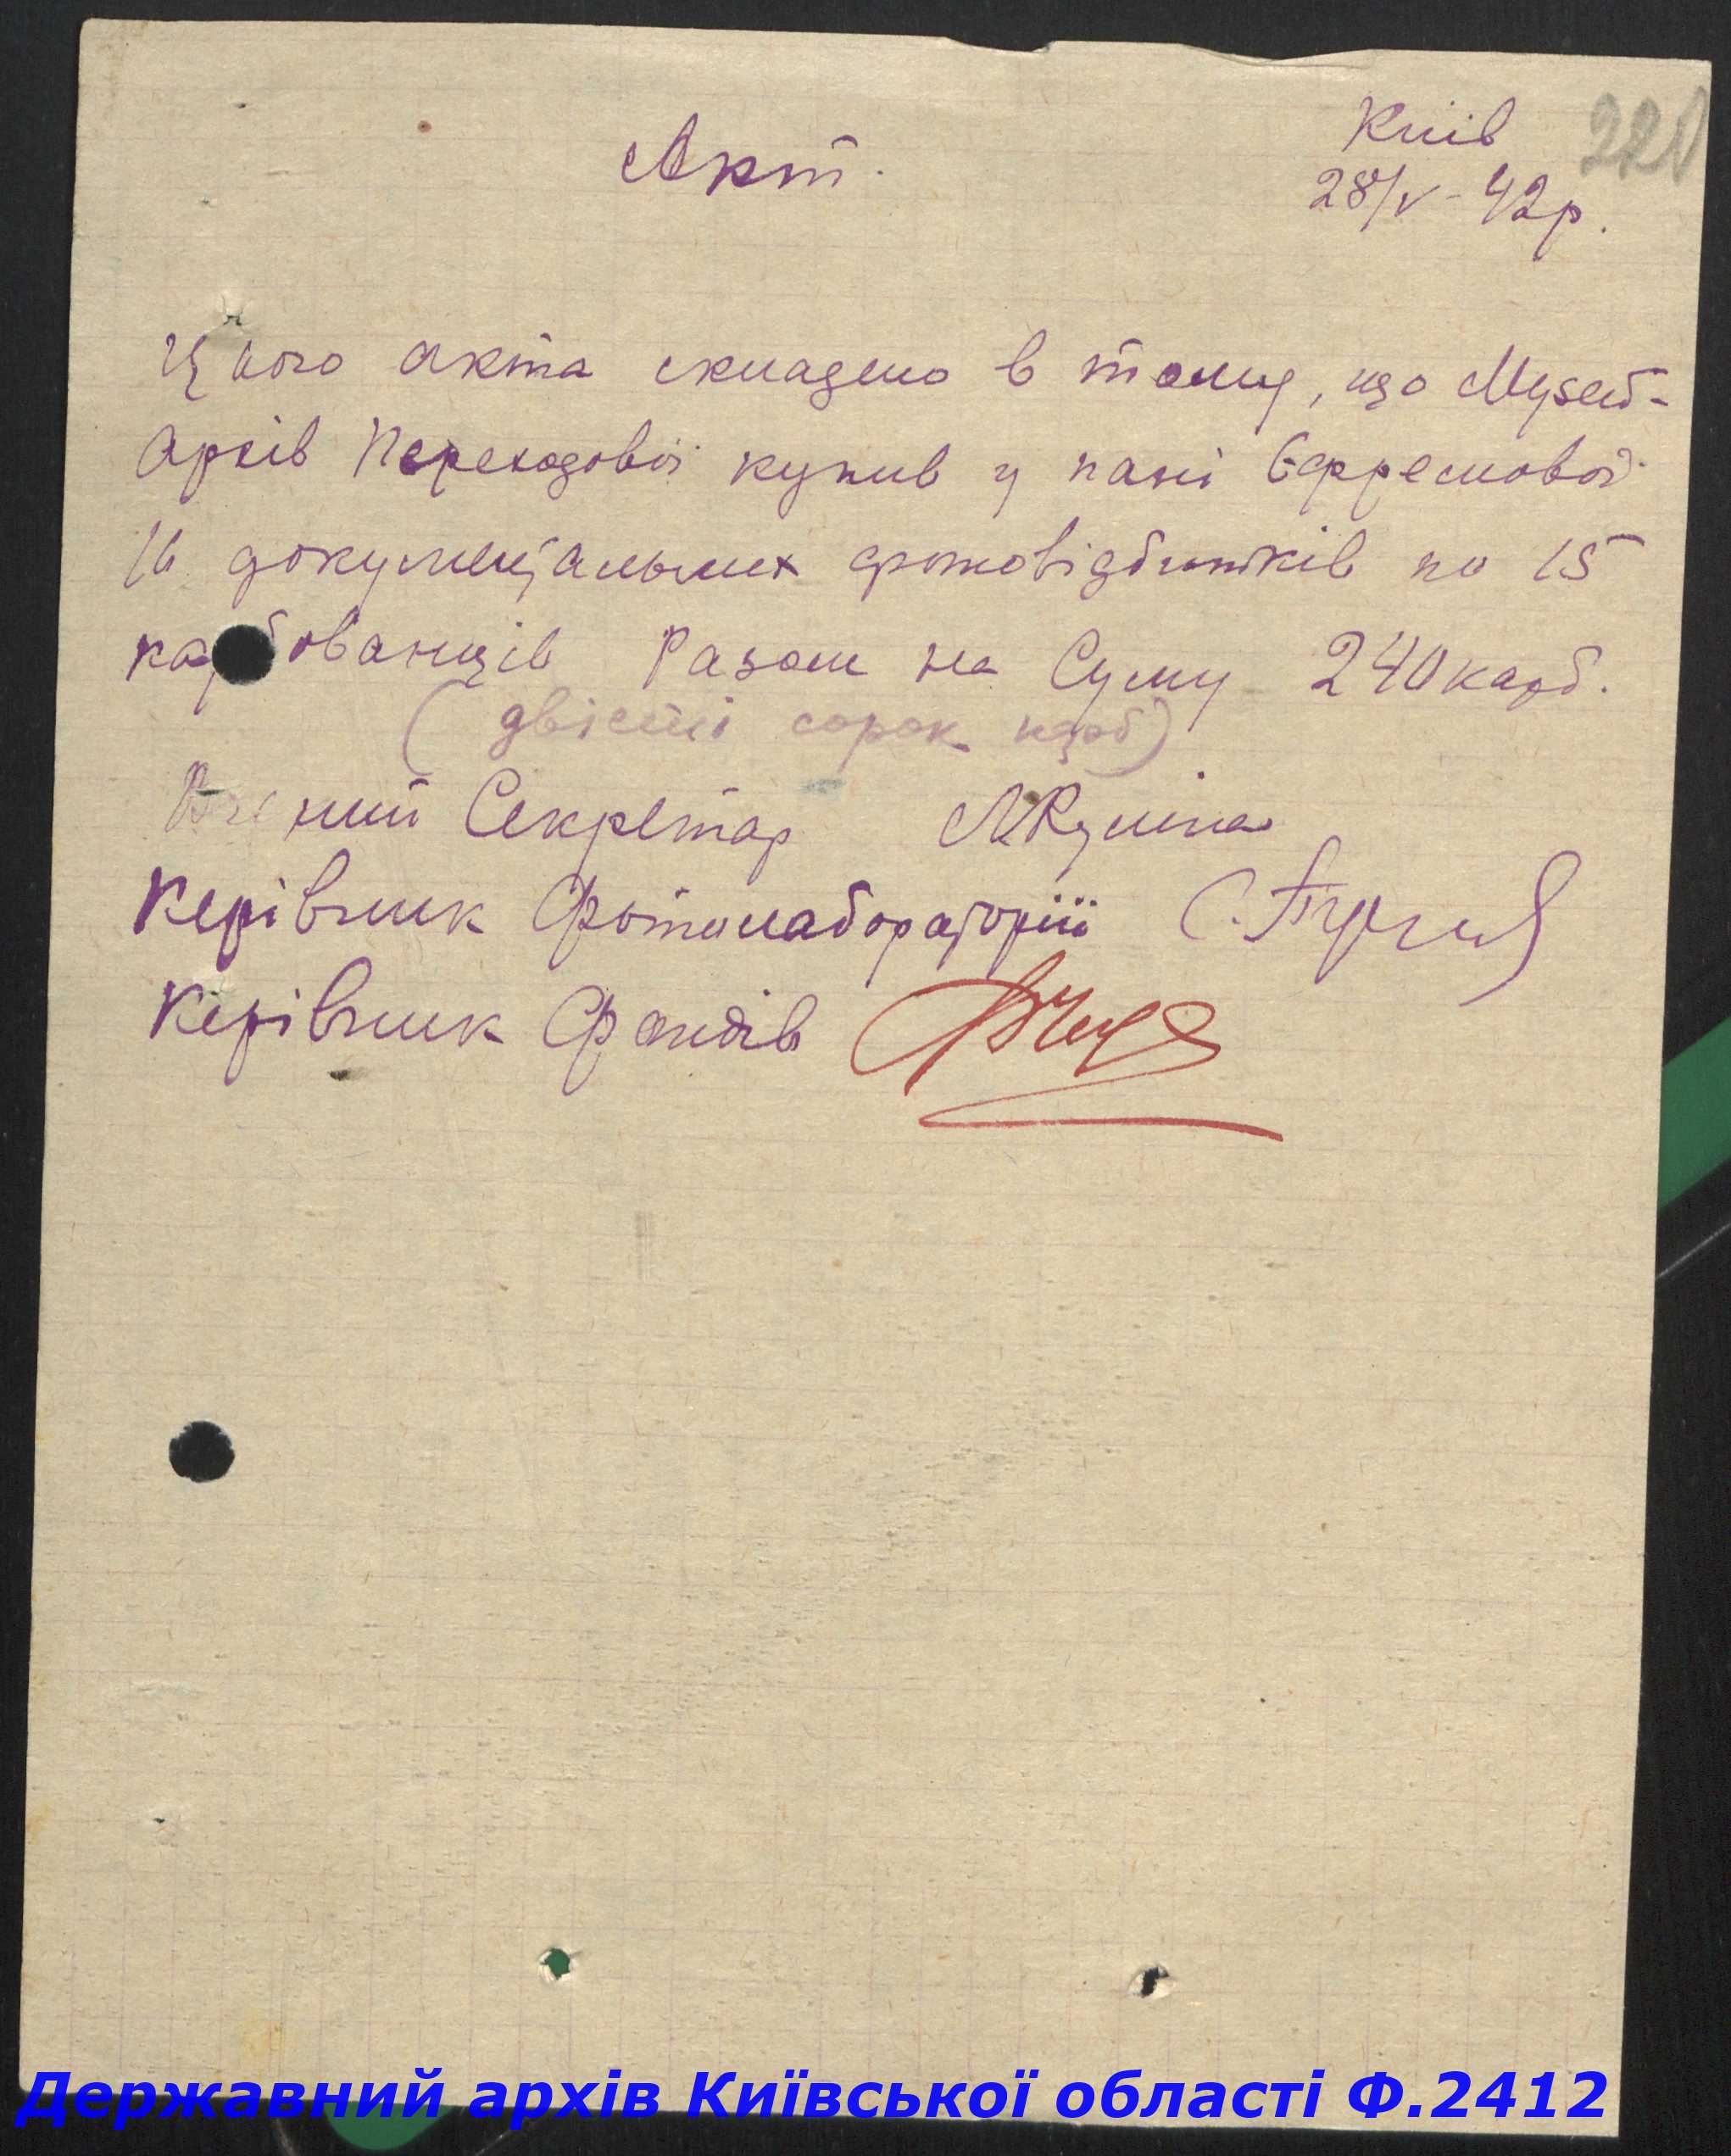 Київ
220
28/V - 42 р.
Акт.
Цього акта складено в тому, що Музей-
Архів Переходової купив у пані Єфремової
16 документальних фотовідбитків по 15
карбованців Разом на Суму 240 карб.
(двісті сорок карб)
Вчений Секретар
Керівник Фотолабораторії С.
Керівник Фондів
Державний архів Київської області Ф.2412